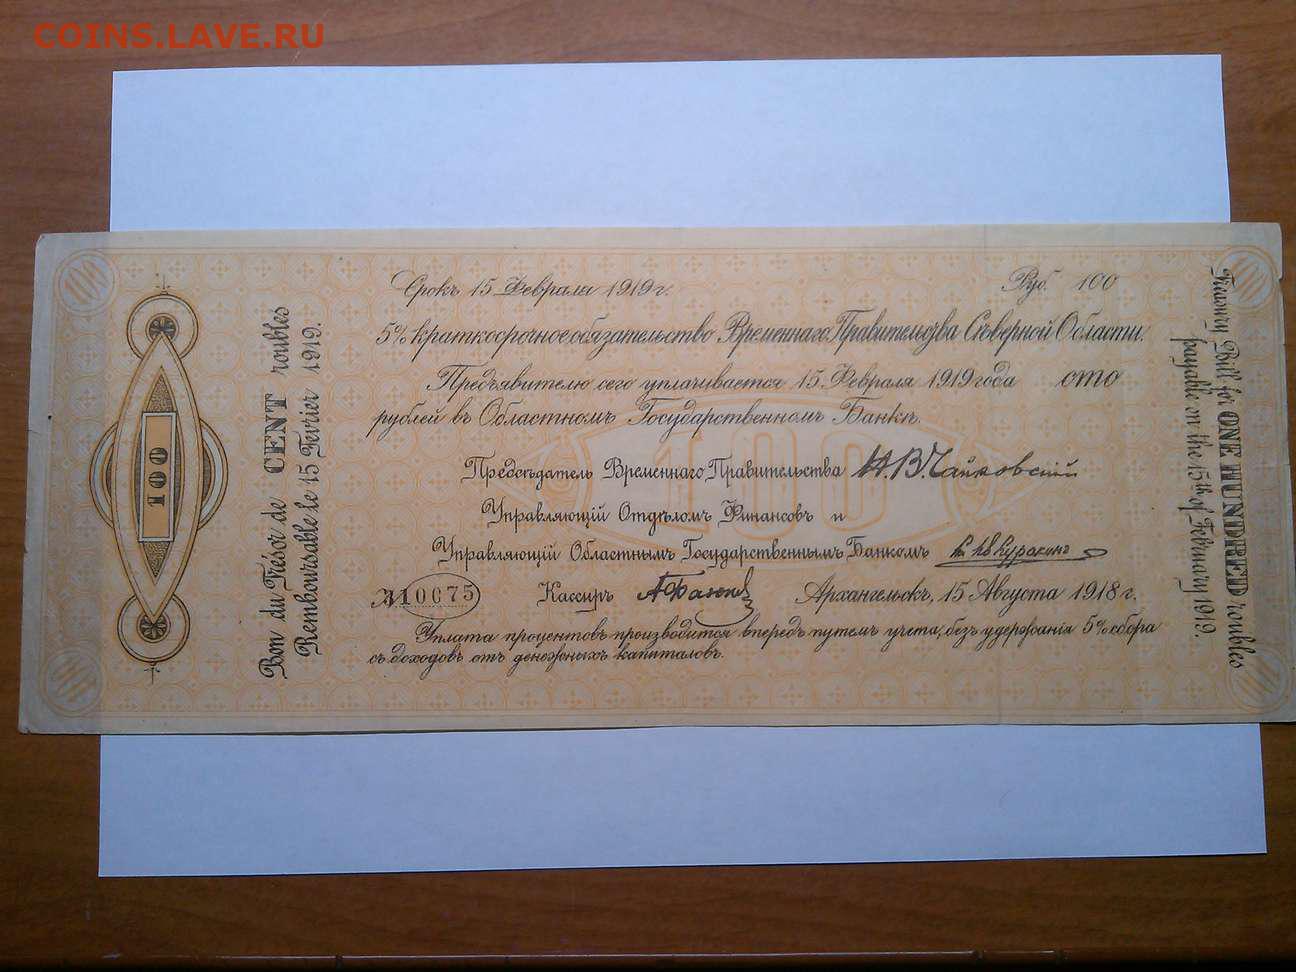 COINS.LAVE.RU
100
100
Bon du Trésor de CENT roubles
Remboursable le 15 Fevrier 1919.
100
Срокъ 15 Февраля 1919 г.
Руб. 100
5% краткосрочное обязательство Временнаго Правительства Сѣверной Области.
Предъявителю сего уплачивается 15 Февраля 1919 года сто
рублей въ Областномъ Государственномъ Банкѣ.
100
Предсѣдатель Временнаго Правительства Н.В.Чайковскій
Управляющій Отдѣломъ Финансовъ и
Управляющій Областнымъ Государственнымъ Банкомъ Куракинъ
№ 10675
Кассиръ
Архангельскъ, 15 Августа 1918 г.
Уплата процентовъ производится впередъ путемъ учета, безъ удержанія 5% сбора
съ доходовъ отъ денежныхъ капиталовъ.
Treasury Bill for ONE HUNDRED roubles
payable on the 15th of February 1919.
100
100